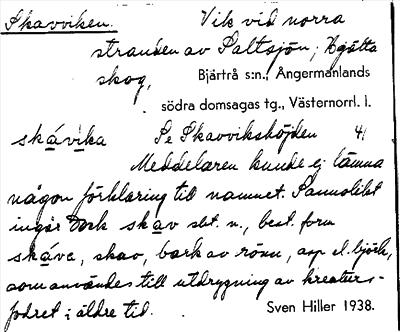 Skavviken. Vik vid norra
stranden av Saltsjön; Ägätta
skog, Bjärtrå s:n., Ångermanlands
södra domsagas tg., Västernorrl. l.
skávika Se Skavvikshöjden 4/
Meddelaren kunde ej lämna
någon förklaring till namnet. Sannolikt
ingår dock skav sbt. n., best. form
skáve, skav, bark av rönn, asp el. björk,
som användes till utdrygning av kreaturs-
fodret i äldre tid. Sven Hiller 1938.